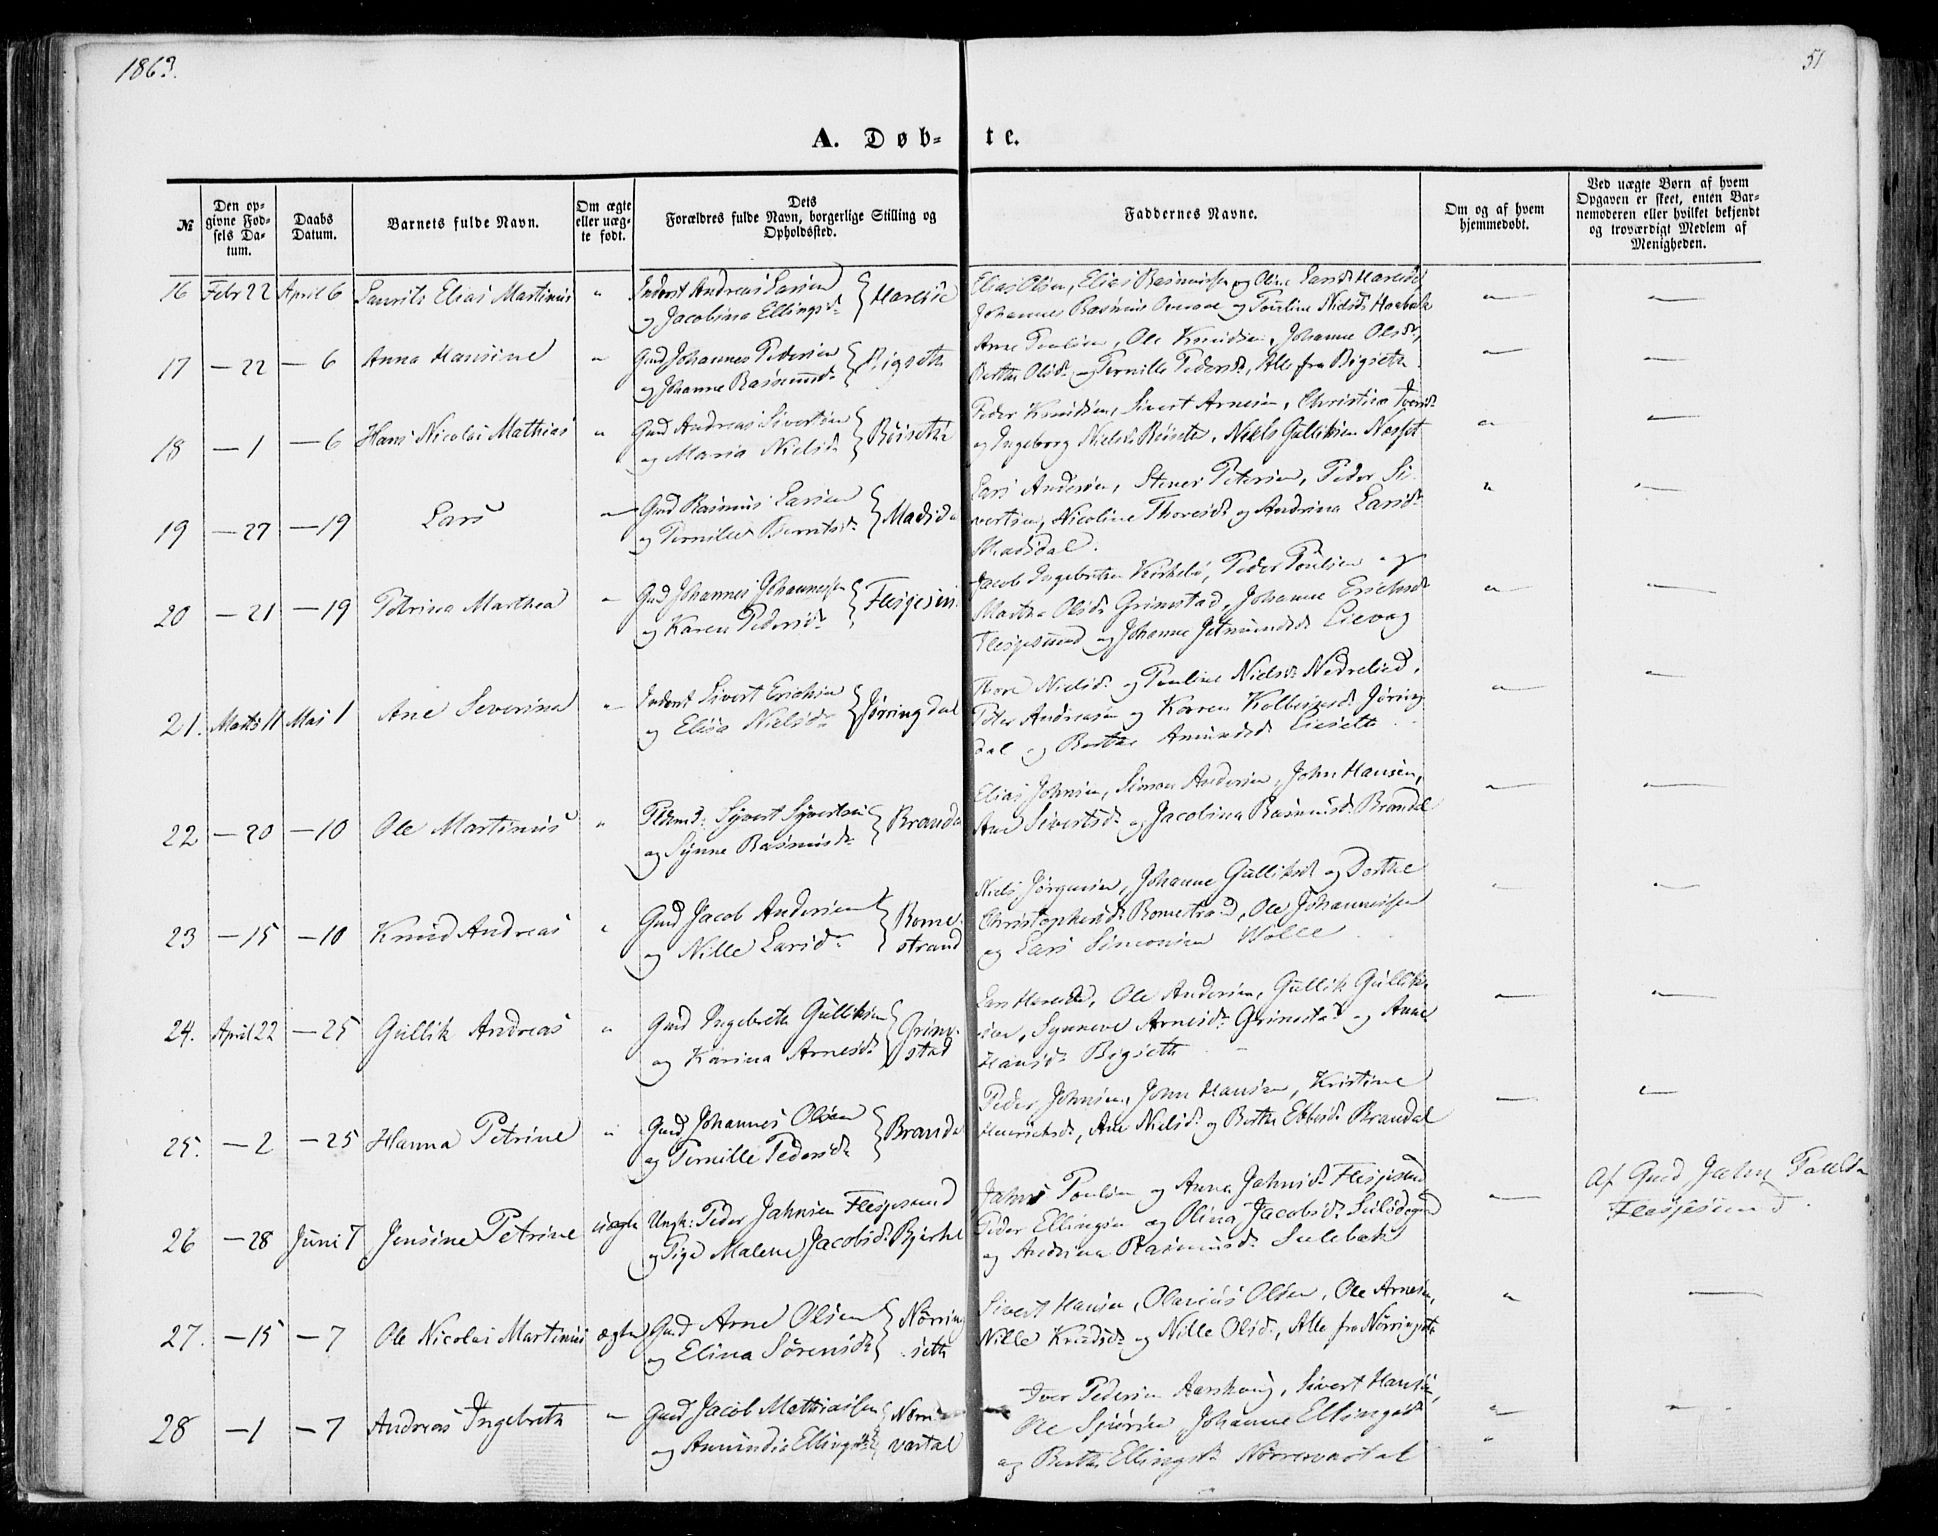 1863.
51
A. Døb-
te.
№
Den op-
givne Fød-
sels Da-
tum.
Daabs
Datum.
Barnets fulde Navn.
Om ægte
eller uæg-
te født.
Dets
Forældres fulde Navn, borgerlige Stilling og
Opholdssted.
Faddernes Navne.
Om og af hvem
hjemmedøbt.
Ved uægte Børn af hvem
Opgaven er skeet, enten Bar-
nemoderen eller hvilket bekjendt
og troværdigt Medlem af
Menigheden.
16 Febr 22 April 6 Laurits Elias Martinus " Inderst Andreas Larsen
og Jacobina Ellingsd. Hareise
Elias Olsen, Elias Rasmussen og Oline Larsd. Hareise
Johannes Rasmus Overaae og Pouline Nielsd.
17 — 22 — 6 Anna Hansine " Gmd Johannes Pedersen
og Johanne Rasmusd. Bigseth
Arne Poulsen, Ole Knudsen, Johanne Olsd.,
Berthe Olsd. og Pernille Pedersd., Alle fra Bigseth.
18 — 1 — 6 Hans Nicolai Mathias " Gmd Andreas Sivertsen
og Maria Nielsd. Röiseth
Peder Knudsen, Sivert Arnesen, Christine Iversd.
og Ingeborg Nielsd. Röiseth, Niels Gulliksen Nesset
19 — 27 — 19 Lars " Gmd Rasmus Larsen
og Pernille Berntsd. Madsda
Lars Andersen, Stener Petersen, Peder Si-
vertsen, Nicoline Thoresd. og Andrina Larsd.
Madsdal.
20 — 21 — 19 Petrina Marthea " Gmd Johannes Johannessen
og Karen Pedersd. Flesjesun
Jacob Ingebretsen, Peder Poulsen og
Martha Olsd. Grimstad, Johanne Erichsd.
Flesjesund og Johanne Jetmundsd. Eidevog
21. Marts 11 Mai 1 Ane Severina " Inderst Sivert Erichsen
og Elisa Nielsd. Jörringdal
Thore Nielsd. og Pouline Nielsd. Nedrelied,
Peter Andreasen og Karen Kolbeinsd. Jörring
dal og Berthe Amundsd. Lieseth
22 — 20 — 10 Ole Martinus " Pldsmd: Syvert Syvertsen
og Synne Rasmusd. Branda
Elias Johnsen, Simon Andersen, John Hansen,
Ane Sivertsd. og Jacobina Rasmusd. Brandal
23 — 15 — 10 Knud Andreas " Gmd Jacob Andersen
og Nille Larsd. Rome-
strand
Niels Jörgensen, Johanne Gulliksd. og Dorthe
Christophersd. Romestrand, Ole Johannessen
og Lars Simonsen Wolle
24. April 22 — 25 Gullik Andreas " Gmd Ingebreth Gulliksen
og Karina Arnesd. Grim-
stad
Lars Hareide, Ole Andersen, Gullik Gullik-
sen, Synneve Arnesd. Grimstad og Anne
Hansd. Bigseth
25. — 2 — 25 Hanna Petrine " Gmd Johannes Olsen
og Pernille Pedersd. Branda
Peder Johnsen, John Hansen, Kristine
Henriksd., Ane Nielsd. og Berthe Ebbesd. Brandal
26 — 28 Juni 7 Jensine Petrine uægte Ungk: Peder Jahnsen Flesjesund
og Pige Malene Jacobsd. Bjerke
Jahn Poulsen og Anna Jahnsd. Flesjesund
Peder Ellingsen og Olina Jacobsd.
og Andrina Rasmusd. Sulebak
Af Gmd Jahn Poulsen
Flesjesund.
27. — 15 — 7 Ole Nicolai Martinus ægte Gmd Arne Olsen
og Elina Sörensd. Nörring
seth
Sivert Hansen, Olarius Olsen, Ole Arnesen,
Nille Knudsd. og Nille Olsd., Alle fra Nörringseth
28 — 1 — 7 Andreas Ingebreth " Gmd Jacob Mathiassen
og Amundie Ellingsd. Nörre
vartal
Iver Pedersen Aarskoug, Sivert Hansen,
Ole Sjursen, Johanne Ellingsd.
og Berthe Ellingsd. Nörrevartal